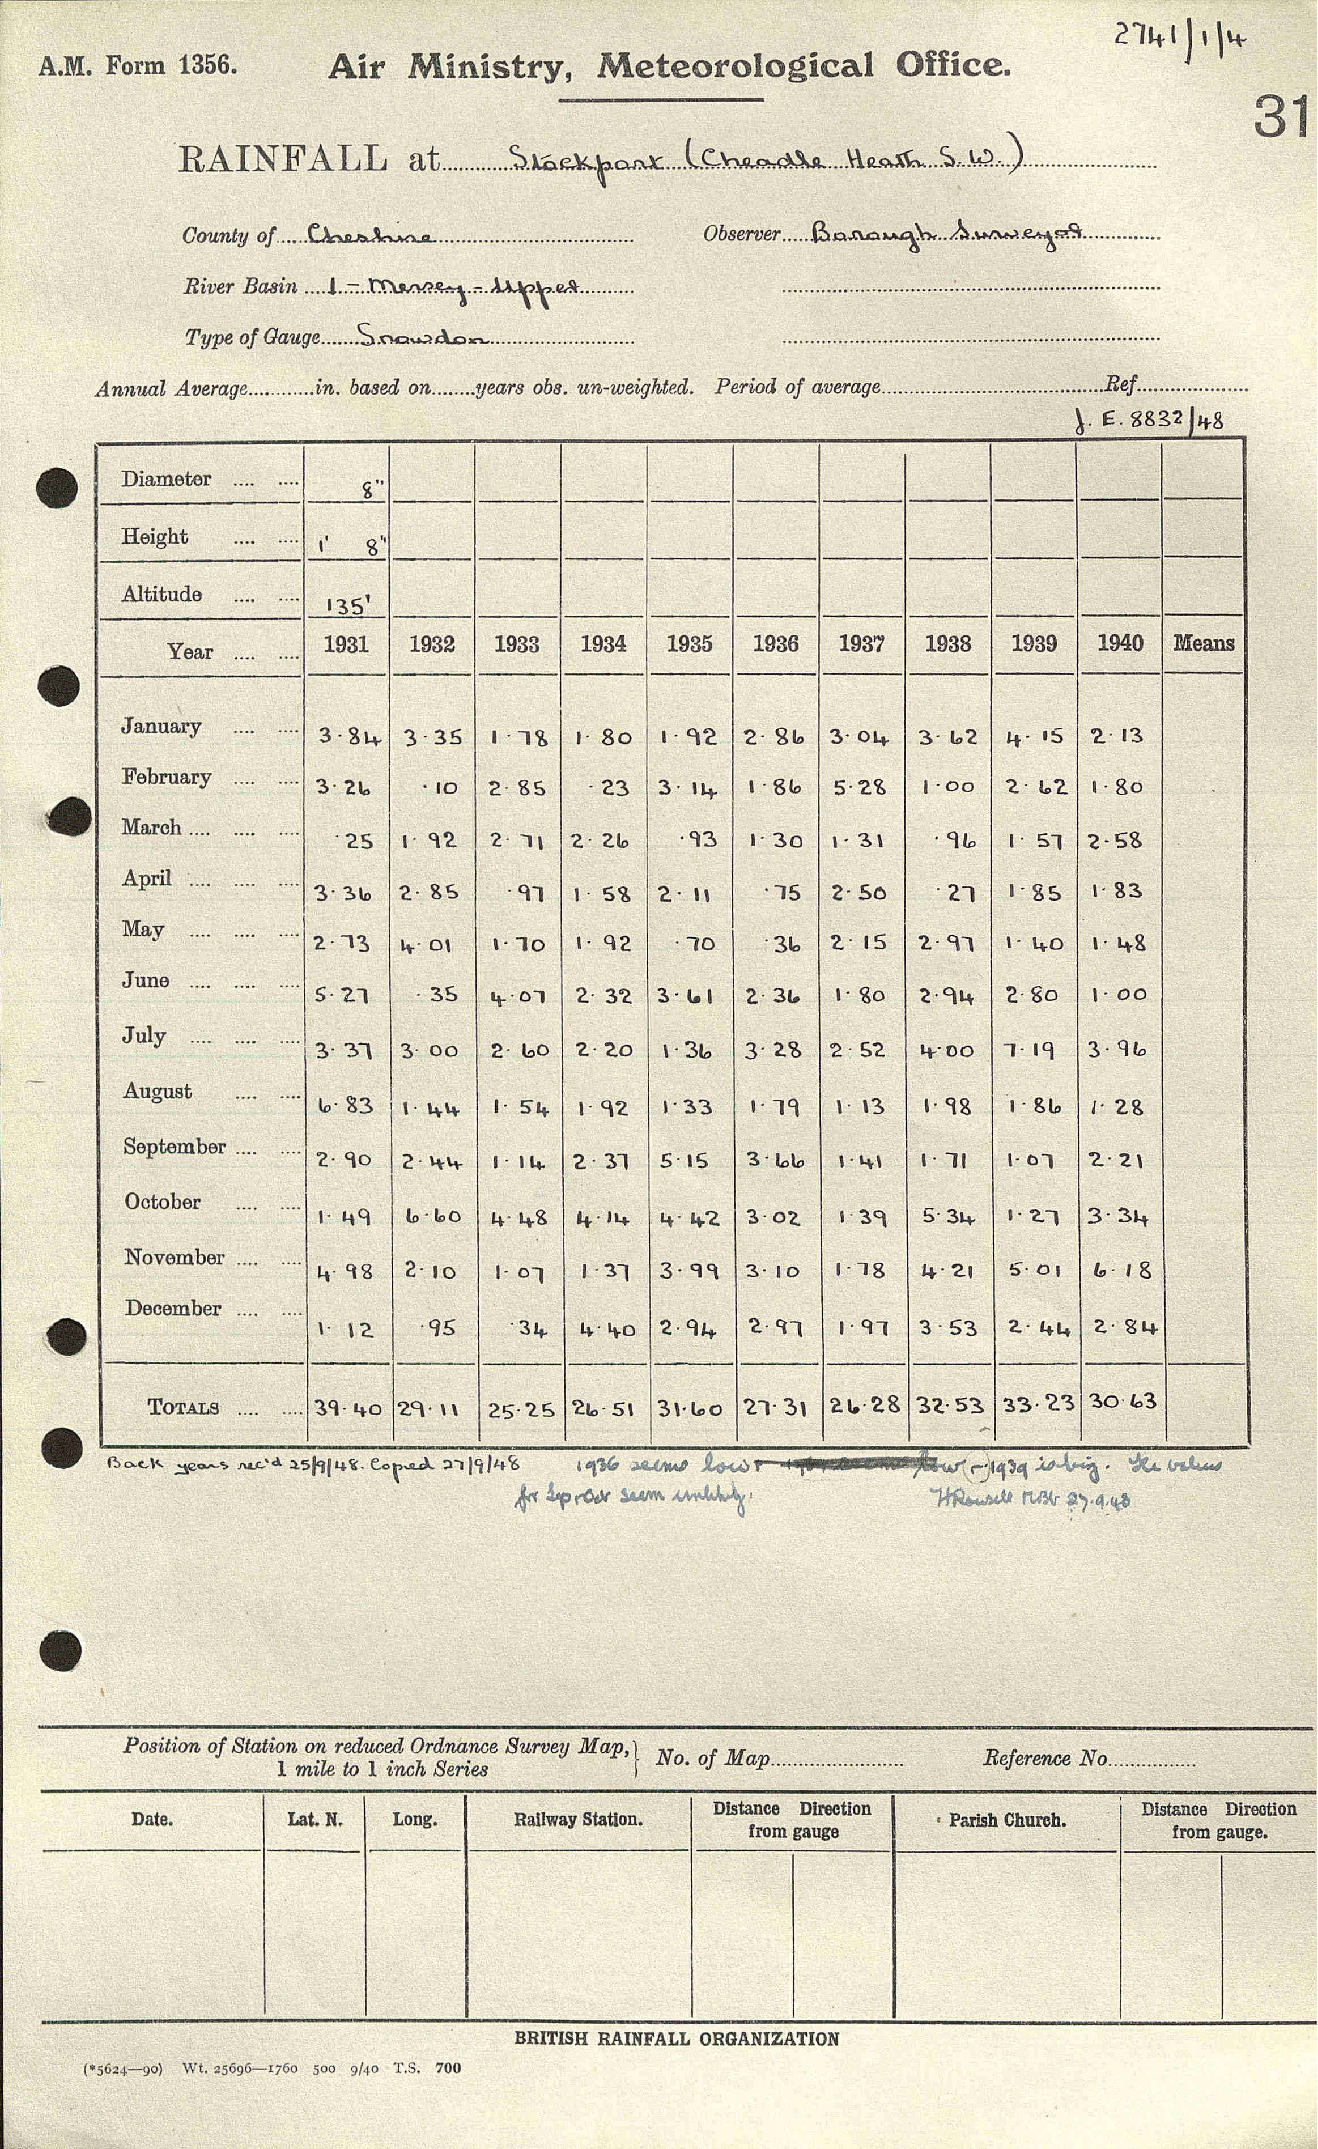 2741/1/4
A.M. Form 1356. Air Ministry, Meteorological Office.
31
RAINFALL at Stockport (Cheadle Heath S.W.)
County of Cheshire Observer Borough Surveyor
River Basin 1 - Mersey - Upper
Type of Gauge Snowdon
Annual Average in. based on years obs. un-weighted. Period of average Ref.
J.E. 8832/48
Diameter 8"
Height 1' 8"
Altitude 135'
Year 1931 1932 1933 1934 1935 1936 1937 1938 1939 1940 Means
January 3.84 3.35 1.78 1.80 1.92 2.86 3.04 3.62 4.15 2.13
February 3.26 .10 2.85 .23 3.14 1.86 5.28 1.00 2.62 1.80
March .25 1.92 2.71 2.26 .93 1.30 1.31 .96 1.57 2.58
April 3.36 2.85 .97 1.58 2.11 .75 2.50 .27 1.85 1.83
May 2.73 4.01 1.70 1.92 .70 .36 2.15 2.97 1.40 1.48
June 5.27 .35 4.07 2.32 3.61 2.36 1.80 2.94 2.80 1.00
July 3.37 3.00 2.60 2.20 1.36 3.28 2.52 4.00 7.19 3.96
August 6.83 1.44 1.54 1.92 1.33 1.79 1.13 1.98 1.86 1.28
September 2.90 2.44 1.14 2.37 5.15 3.66 1.41 1.71 1.07 2.21
October 1.49 6.60 4.48 4.14 4.42 3.02 1.39 5.34 1.27 3.34
November 4.98 2.10 1.07 1.37 3.99 3.10 1.78 4.21 5.01 6.18
December 1.12 .95 .34 4.40 2.94 2.97 1.97 3.53 2.44 2.84
TOTALS 39.40 29.11 25.25 26.51 31.60 27.31 26.28 32.53 33.23 30.63
Back years rec'd 25/9/48. Copied 27/9/48 1936 seems low 1939 is big. The values
for Sep + Oct seem unlikely. 27.9.48
Position of Station on reduced Ordnance Survey Map, No. of Map Reference No.
1 mile to 1 inch Series
Date. Lat. N. Long. Railway Station. Distance Direction from gauge Parish Church. Distance Direction from gauge.
BRITISH RAINFALL ORGANIZATION
(*5624—90) Wt. 25696—1760 500 9/40 T.S. 700